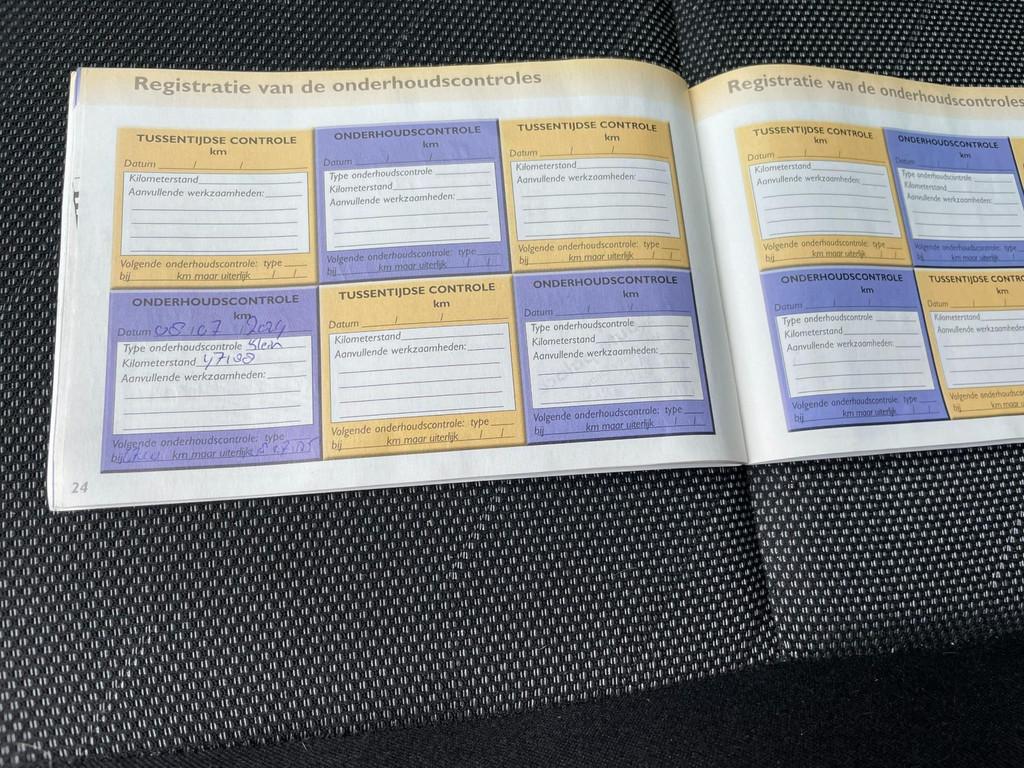 Registratie van de onderhoudscontroles
TUSSENTIJDSE CONTROLE
km
Datum / /
Kilometerstand
Aanvullende werkzaamheden:
Volgende onderhoudscontrole: type
bij km maar uiterlijk / /
ONDERHOUDSCONTROLE
km
Datum / /
Type onderhoudscontrole
Kilometerstand
Aanvullende werkzaamheden:
Volgende onderhoudscontrole: type
bij km maar uiterlijk / /
TUSSENTIJDSE CONTROLE
km
Datum / /
Kilometerstand
Aanvullende werkzaamheden:
Volgende onderhoudscontrole: type
bij km maar uiterlijk / /
ONDERHOUDSCONTROLE
km
Datum 08 / 07 / 2024
Type onderhoudscontrole klein
Kilometerstand
Aanvullende werkzaamheden:
Volgende onderhoudscontrole: type
bij km maar uiterlijk
TUSSENTIJDSE CONTROLE
km
Datum / /
Kilometerstand
Aanvullende werkzaamheden:
Volgende onderhoudscontrole: type
bij km maar uiterlijk / /
ONDERHOUDSCONTROLE
km
Datum / /
Type onderhoudscontrole
Kilometerstand
Aanvullende werkzaamheden:
Volgende onderhoudscontrole: type
bij km maar uiterlijk / /
24
Registratie van de onderhoudscontroles
TUSSENTIJDSE CONTROLE
km
Datum / /
Kilometerstand
Aanvullende werkzaamheden:
Volgende onderhoudscontrole: type
bij km maar uiterlijk / /
ONDERHOUDSCONTROLE
km
Datum / /
Type onderhoudscontrole
Kilometerstand
Aanvullende werkzaamheden:
Volgende onderhoudscontrole: type
bij km maar uiterlijk / /
ONDERHOUDSCONTROLE
km
Datum / /
Type onderhoudscontrole
Kilometerstand
Aanvullende werkzaamheden:
Volgende onderhoudscontrole: type
bij km maar uiterlijk / /
TUSSENTIJDSE CONTRO
km
Datum /
Kilometerstand
Aanvullende werkzaamhede
Volgende onderhoudsco
bij km maar ui